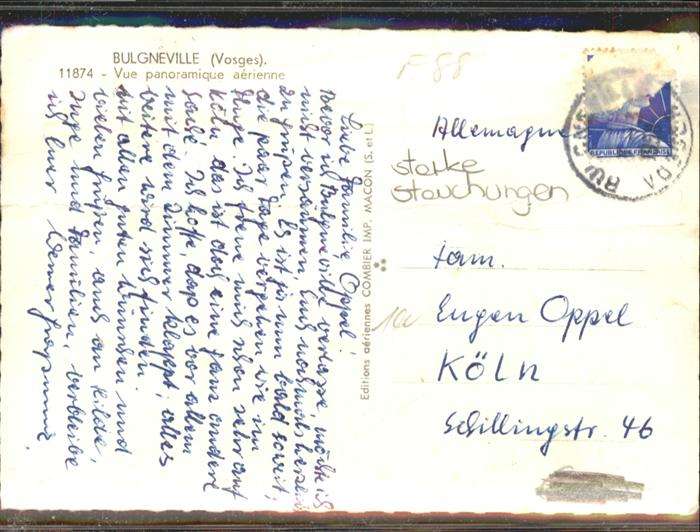 BULGNEVILLE (Vosges).
11874 - Vue panoramique aérienne
Liebe Familie Oppel!
Bevor ich Bulgneville verlasse, möchte ich
nicht versäumen, Euch nochmals herzl.
zu grüßen. Es ist ja nun bald soweit;
die paar Tage vergehen wie im
Fluge. Ich freue mich schon sehr auf
Köln, das ist doch eine ganz andere
Ich hoffe, daß es vor allem
mit dem Zimmer klappt; alles
weitere wird sich finden.
Mit allen guten Wünschen und
vielen Grüßen, auch an Hilde,
und Familien, verbleibe
ich Euer Werner
Editions aériennes COMBIER IMP. MACON (S. et L.)
F 88
Allemagne
starke
Stauchungen
REPUBLIQUE FRANÇAISE
Fam.
Eugen Oppel
KÖLN
Schillingstr. 46